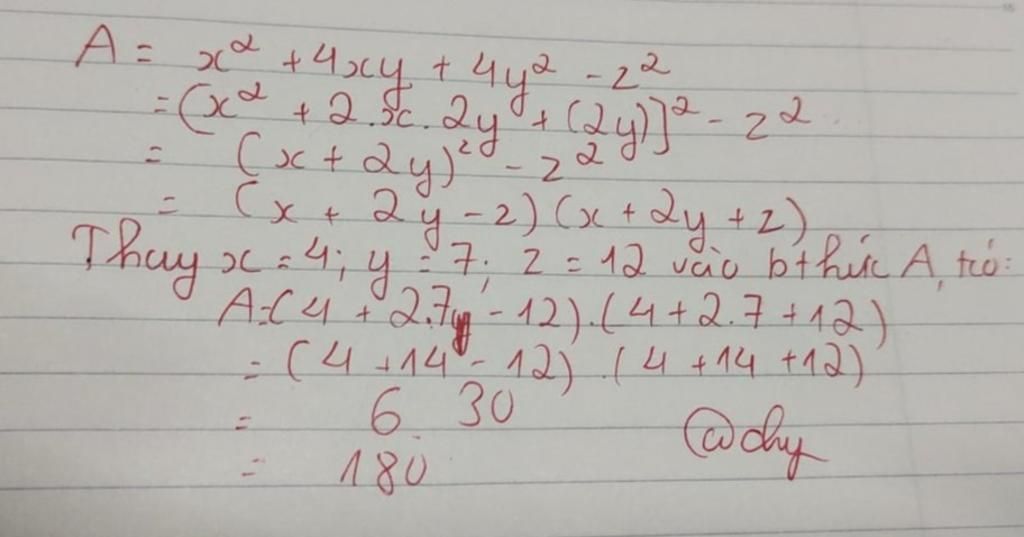 A = x² + 4xy + 4y² - z²
= (x² + 2.x.2y + (2y)]² - z²
= (x + 2y)² - z²
= (x + 2y - z)(x + 2y + z)
Thay x = 4; y = 7; z = 12 vào bthức A, tcó:
A = (4 + 2.7 - 12).(4 + 2.7 + 12)
= (4 + 14 - 12).(4 + 14 + 12)
= 6.30
= 180
@chy